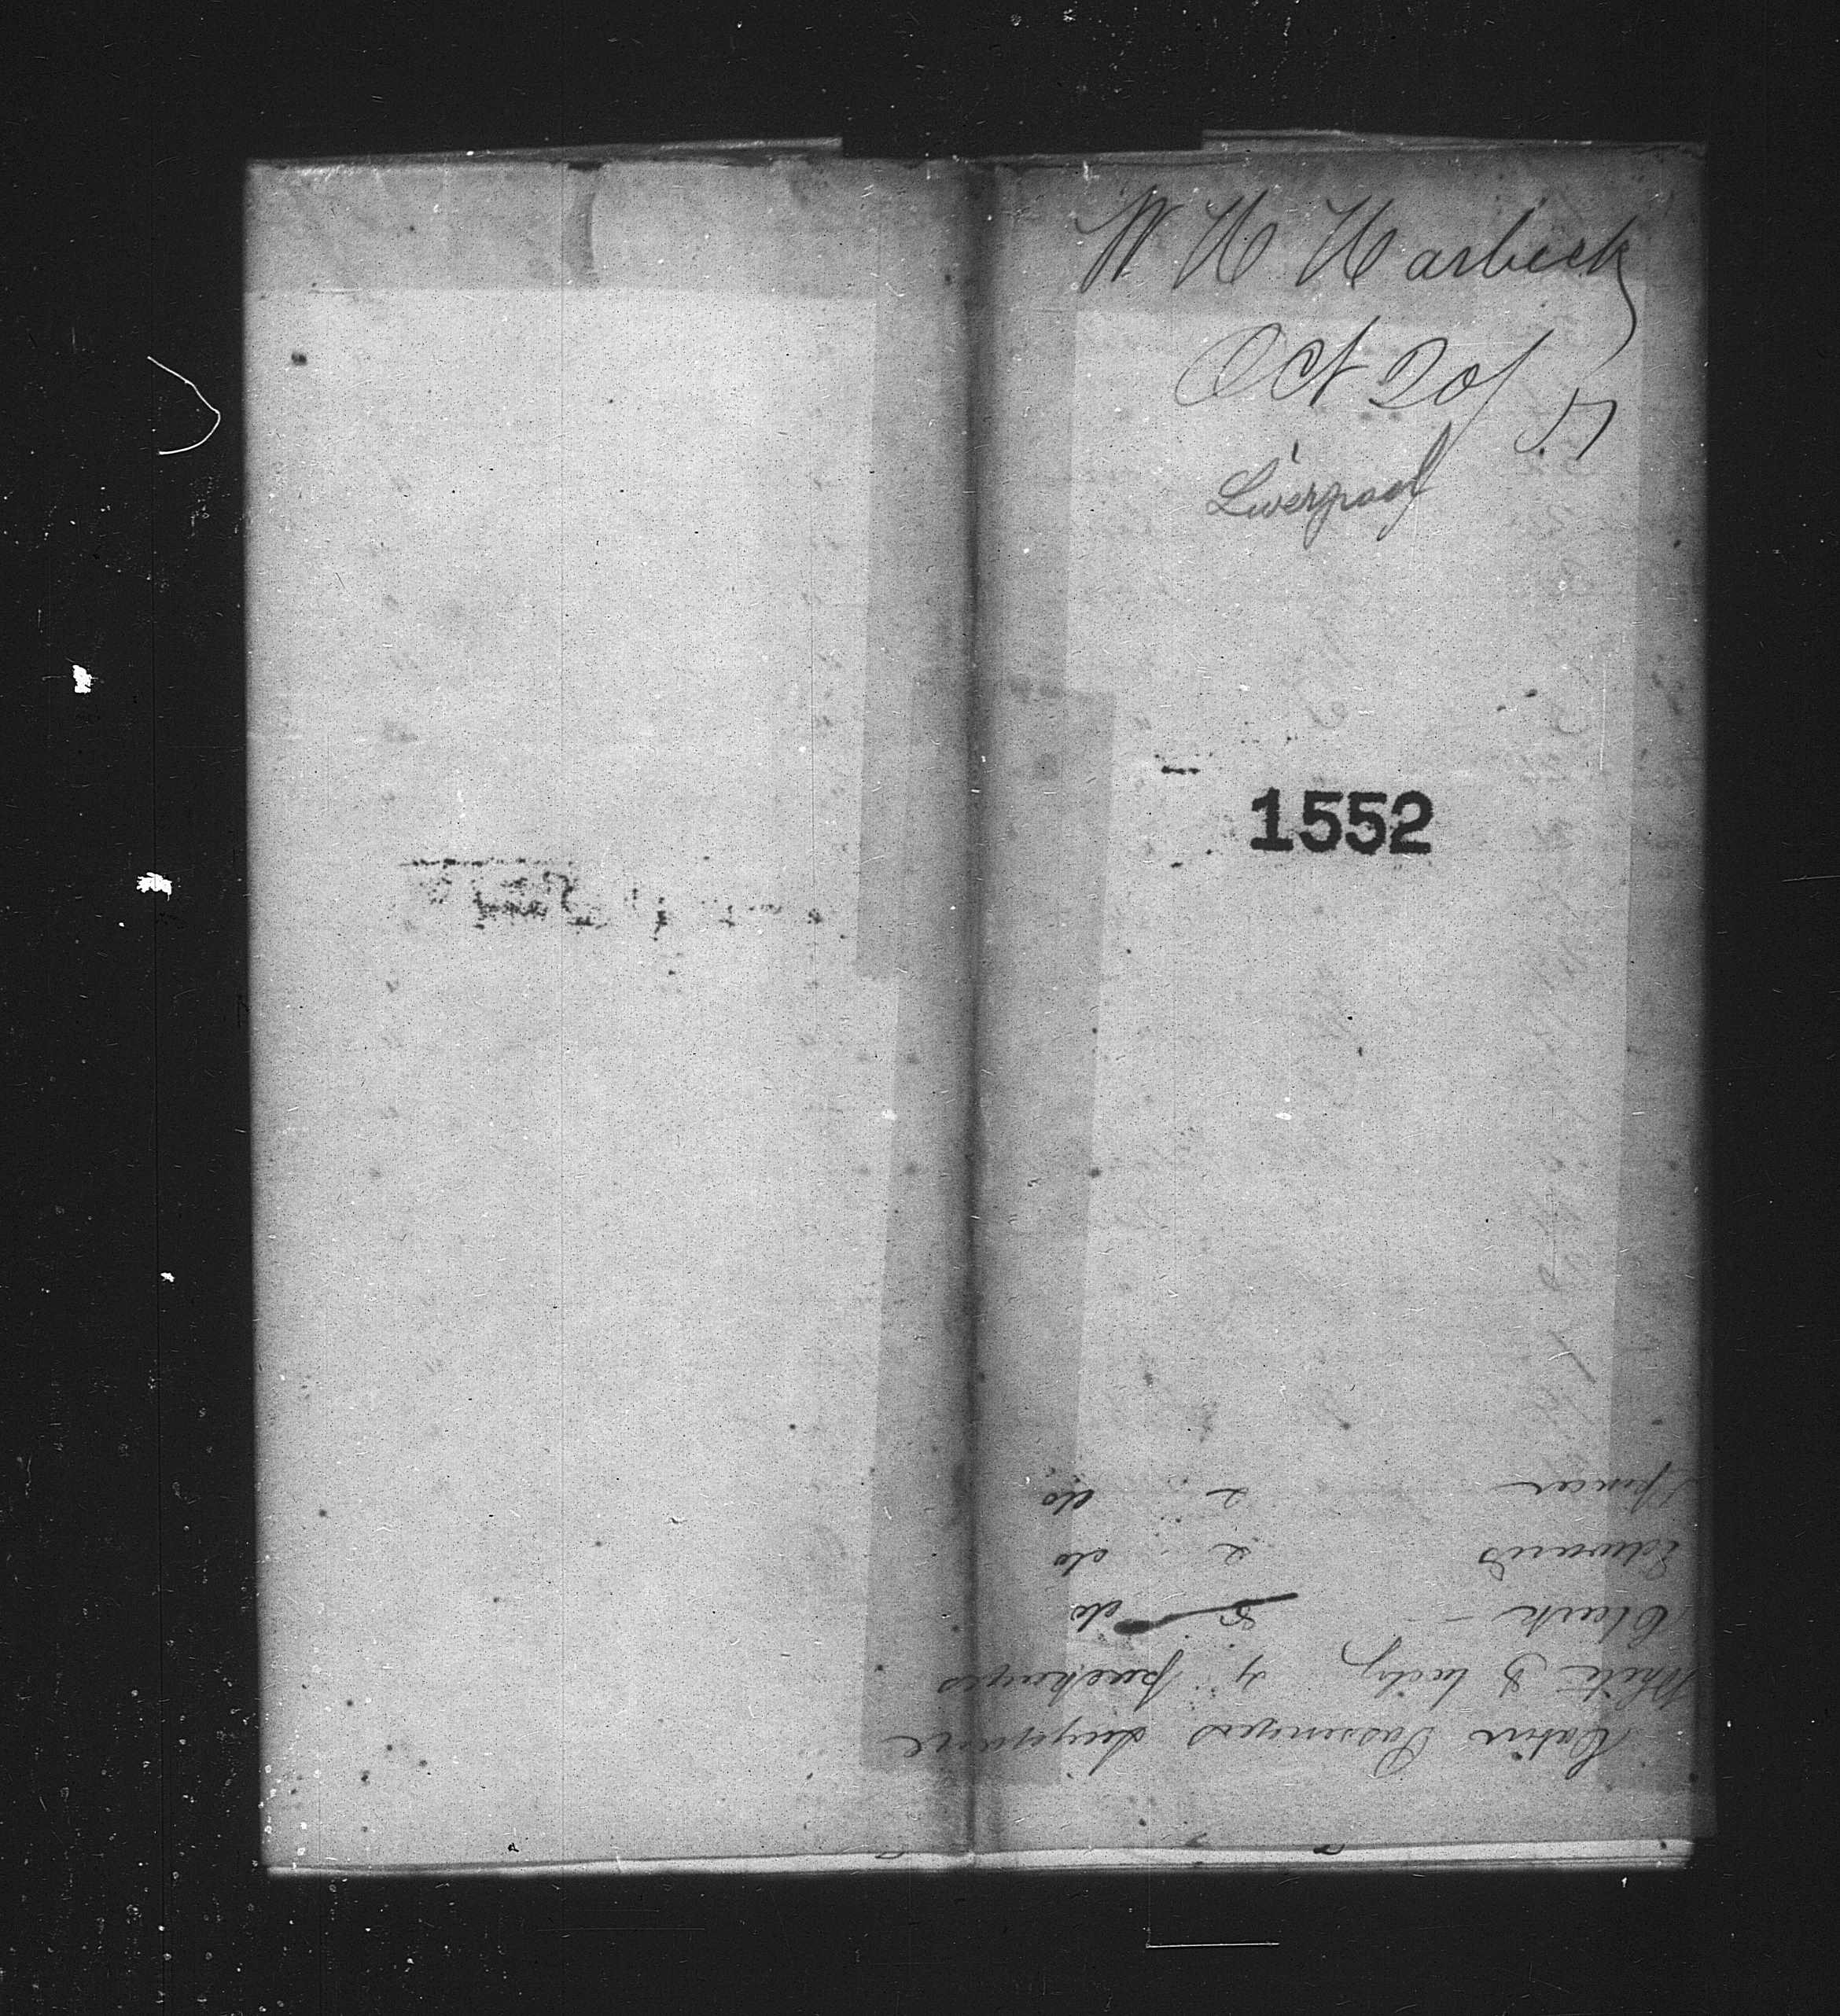 W H Harbeck
Oct 20/
Liverpool
1552
Cabin Passengers Luggage
White & lady 4 packages
Clark - 8 do
Edwards 2 do
Spencer 2 do